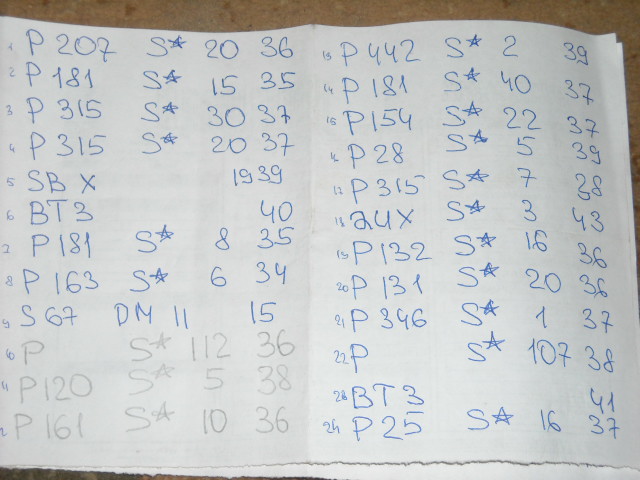 1 P 207 S☆ 20 36
2 P 181 S☆ 15 35
3 P 315 S☆ 30 37
4 P 315 S☆ 20 37
5 SB X 19 39
6 BT3 40
7 P 181 S☆ 8 35
8 P 163 S☆ 6 34
9 S 67 DM 11 15
10 P S☆ 112 36
11 P120 S☆ 5 38
12 P 161 S☆ 10 36
13 P 442 S☆ 2 39
14 P 181 S☆ 40 37
15 P 154 S☆ 22 37
16 P 28 S☆ 5 39
17 P 315 S☆ 7 28
18 S☆ 3 43
19 P 132 S☆ 16 36
20 P 131 S☆ 20 36
21 P 346 S☆ 1 37
22 P S☆ 107 38
23 BT3 41
24 P 25 S☆ 16 37